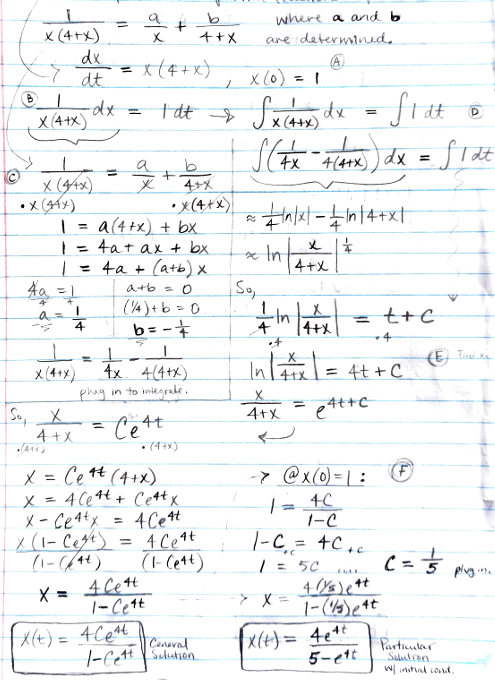 1/(x(4+x)) = a/x + b/(4+x) where a and b are determined.
dx/dt = x(4+x), x(0) = 1 Ⓐ
Ⓑ 1/(x(4+x)) dx = 1dt → ∫ 1/(x(4+x)) dx = ∫ 1 dt Ⓓ
Ⓒ 1/(x(4+x)) = a/x + b/(4+x)
•x(4+x) •x(4+x)
1 = a(4+x) + bx
1 = 4a + ax + bx
1 = 4a + (a+b)x
4a = 1
a = 1/4
a+b = 0
(1/4)+b = 0
b = -1/4
1/(x(4+x)) = 1/4x - 1/(4(4+x))
plug in to integrate.
∫(1/4x - 1/(4(4+x))) dx = ∫ 1 dt
≈ 1/4 ln|x| - 1/4 ln|4+x|
≈ ln|x/(4+x)|^1/4
So,
1/4 ln|x/(4+x)| = t+c
•4 •4
ln|x/(4+x)| = 4t+C Ⓔ
x/(4+x) = e^4t+C
So, x/(4+x) = Ce^4t
•(4+x) •(4+x)
x = Ce^4t (4+x)
x = 4Ce^4t + Ce^4t x
x - Ce^4t x = 4Ce^4t
x(1-Ce^4t)/(1-Ce^4t) = 4Ce^4t/(1-Ce^4t)
x = 4Ce^4t/(1-Ce^4t)
x(t) = 4Ce^4t/(1-Ce^4t) General Solution
→ @x(0)=1: Ⓕ
1 = 4C/(1-C)
1-C = 4C
+C +C
1 = 5C C = 1/5 plug in.
x = 4(1/5)e^4t/(1-(1/5)e^4t)
x(t) = 4e^4t/(5-e^4t) Particular Solution w/ initial cond.